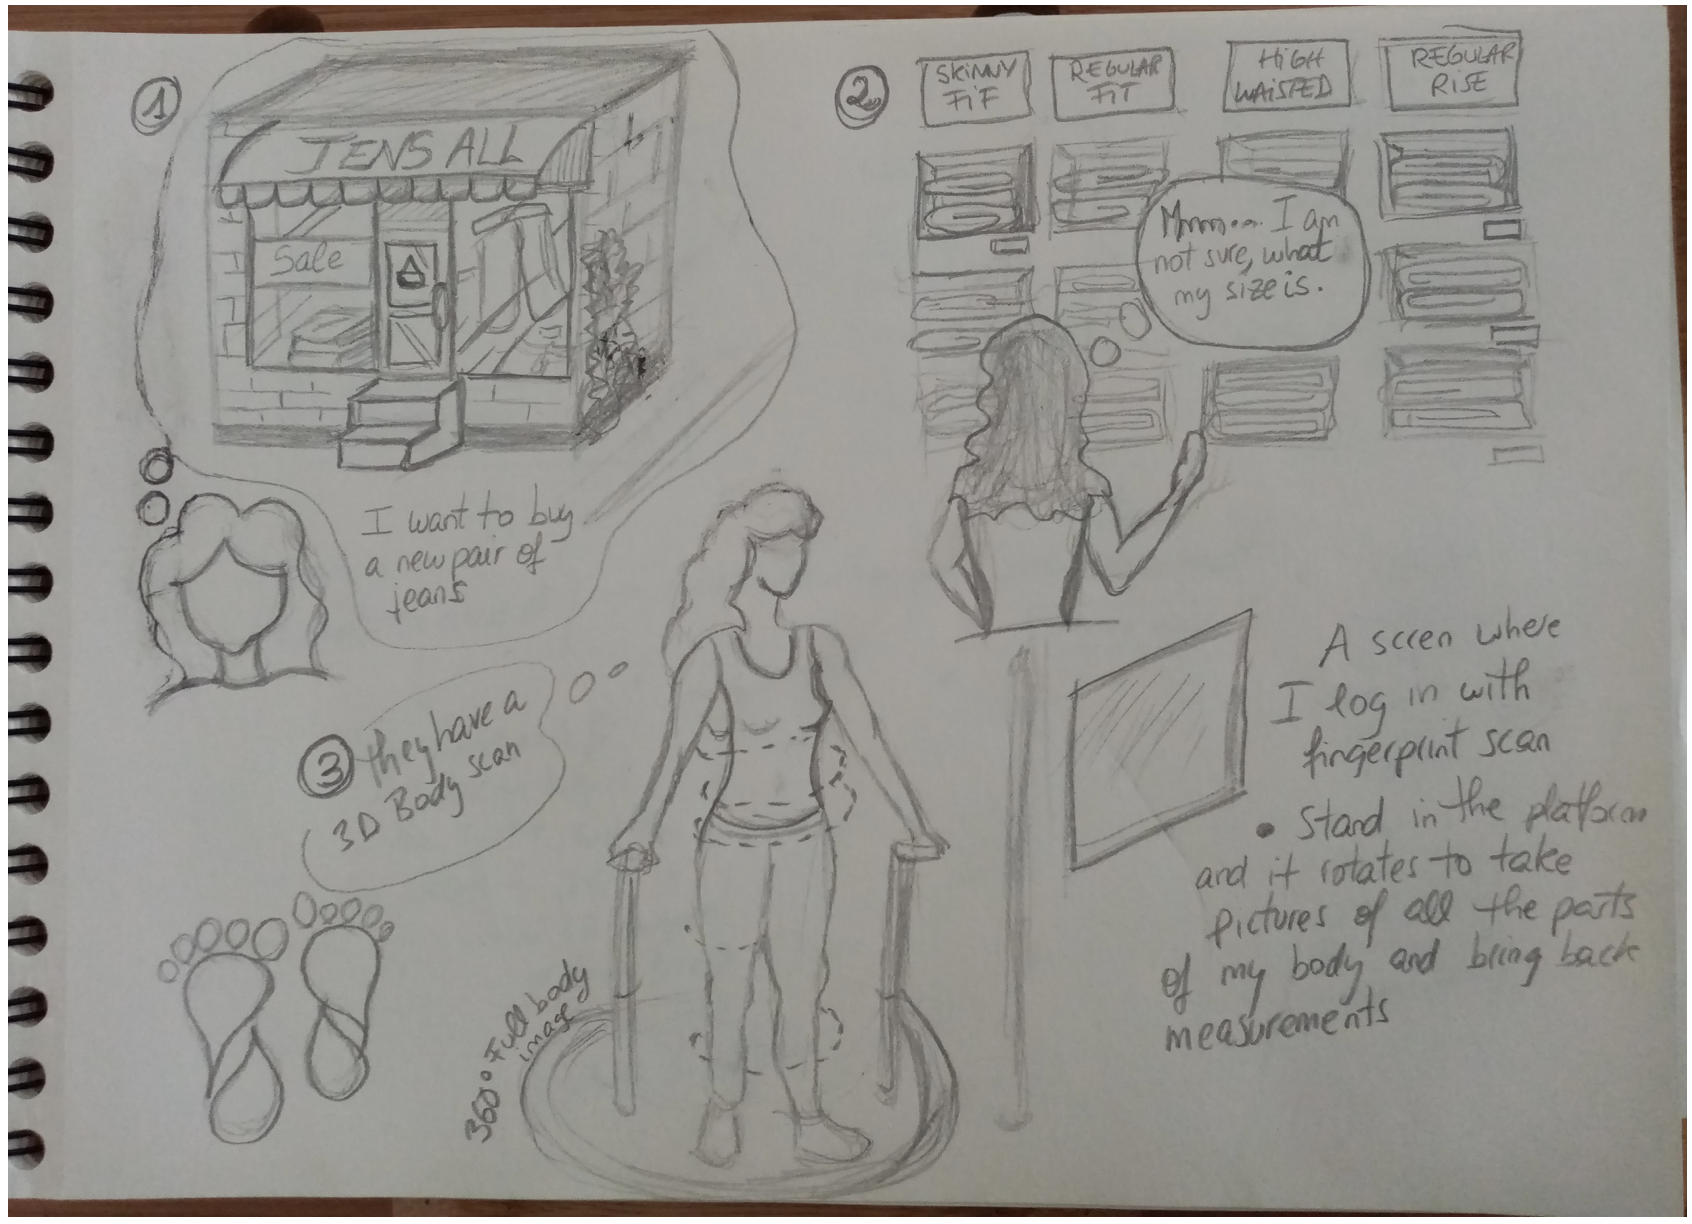 1
JENS ALL
Sale
I want to buy
a new pair of
jeans
2
SKINNY
FIF
REGULAR
FIT
HIGH
WAISTED
REGULAR
RISE
Mmm... I am
not sure, what
my size is.
3
they have a
3D Body scan
360° Full body
image
A scren where
I log in with
fingerprint scan
• Stand in the platform
and it rotates to take
pictures of all the parts
of my body and bring back
measurements